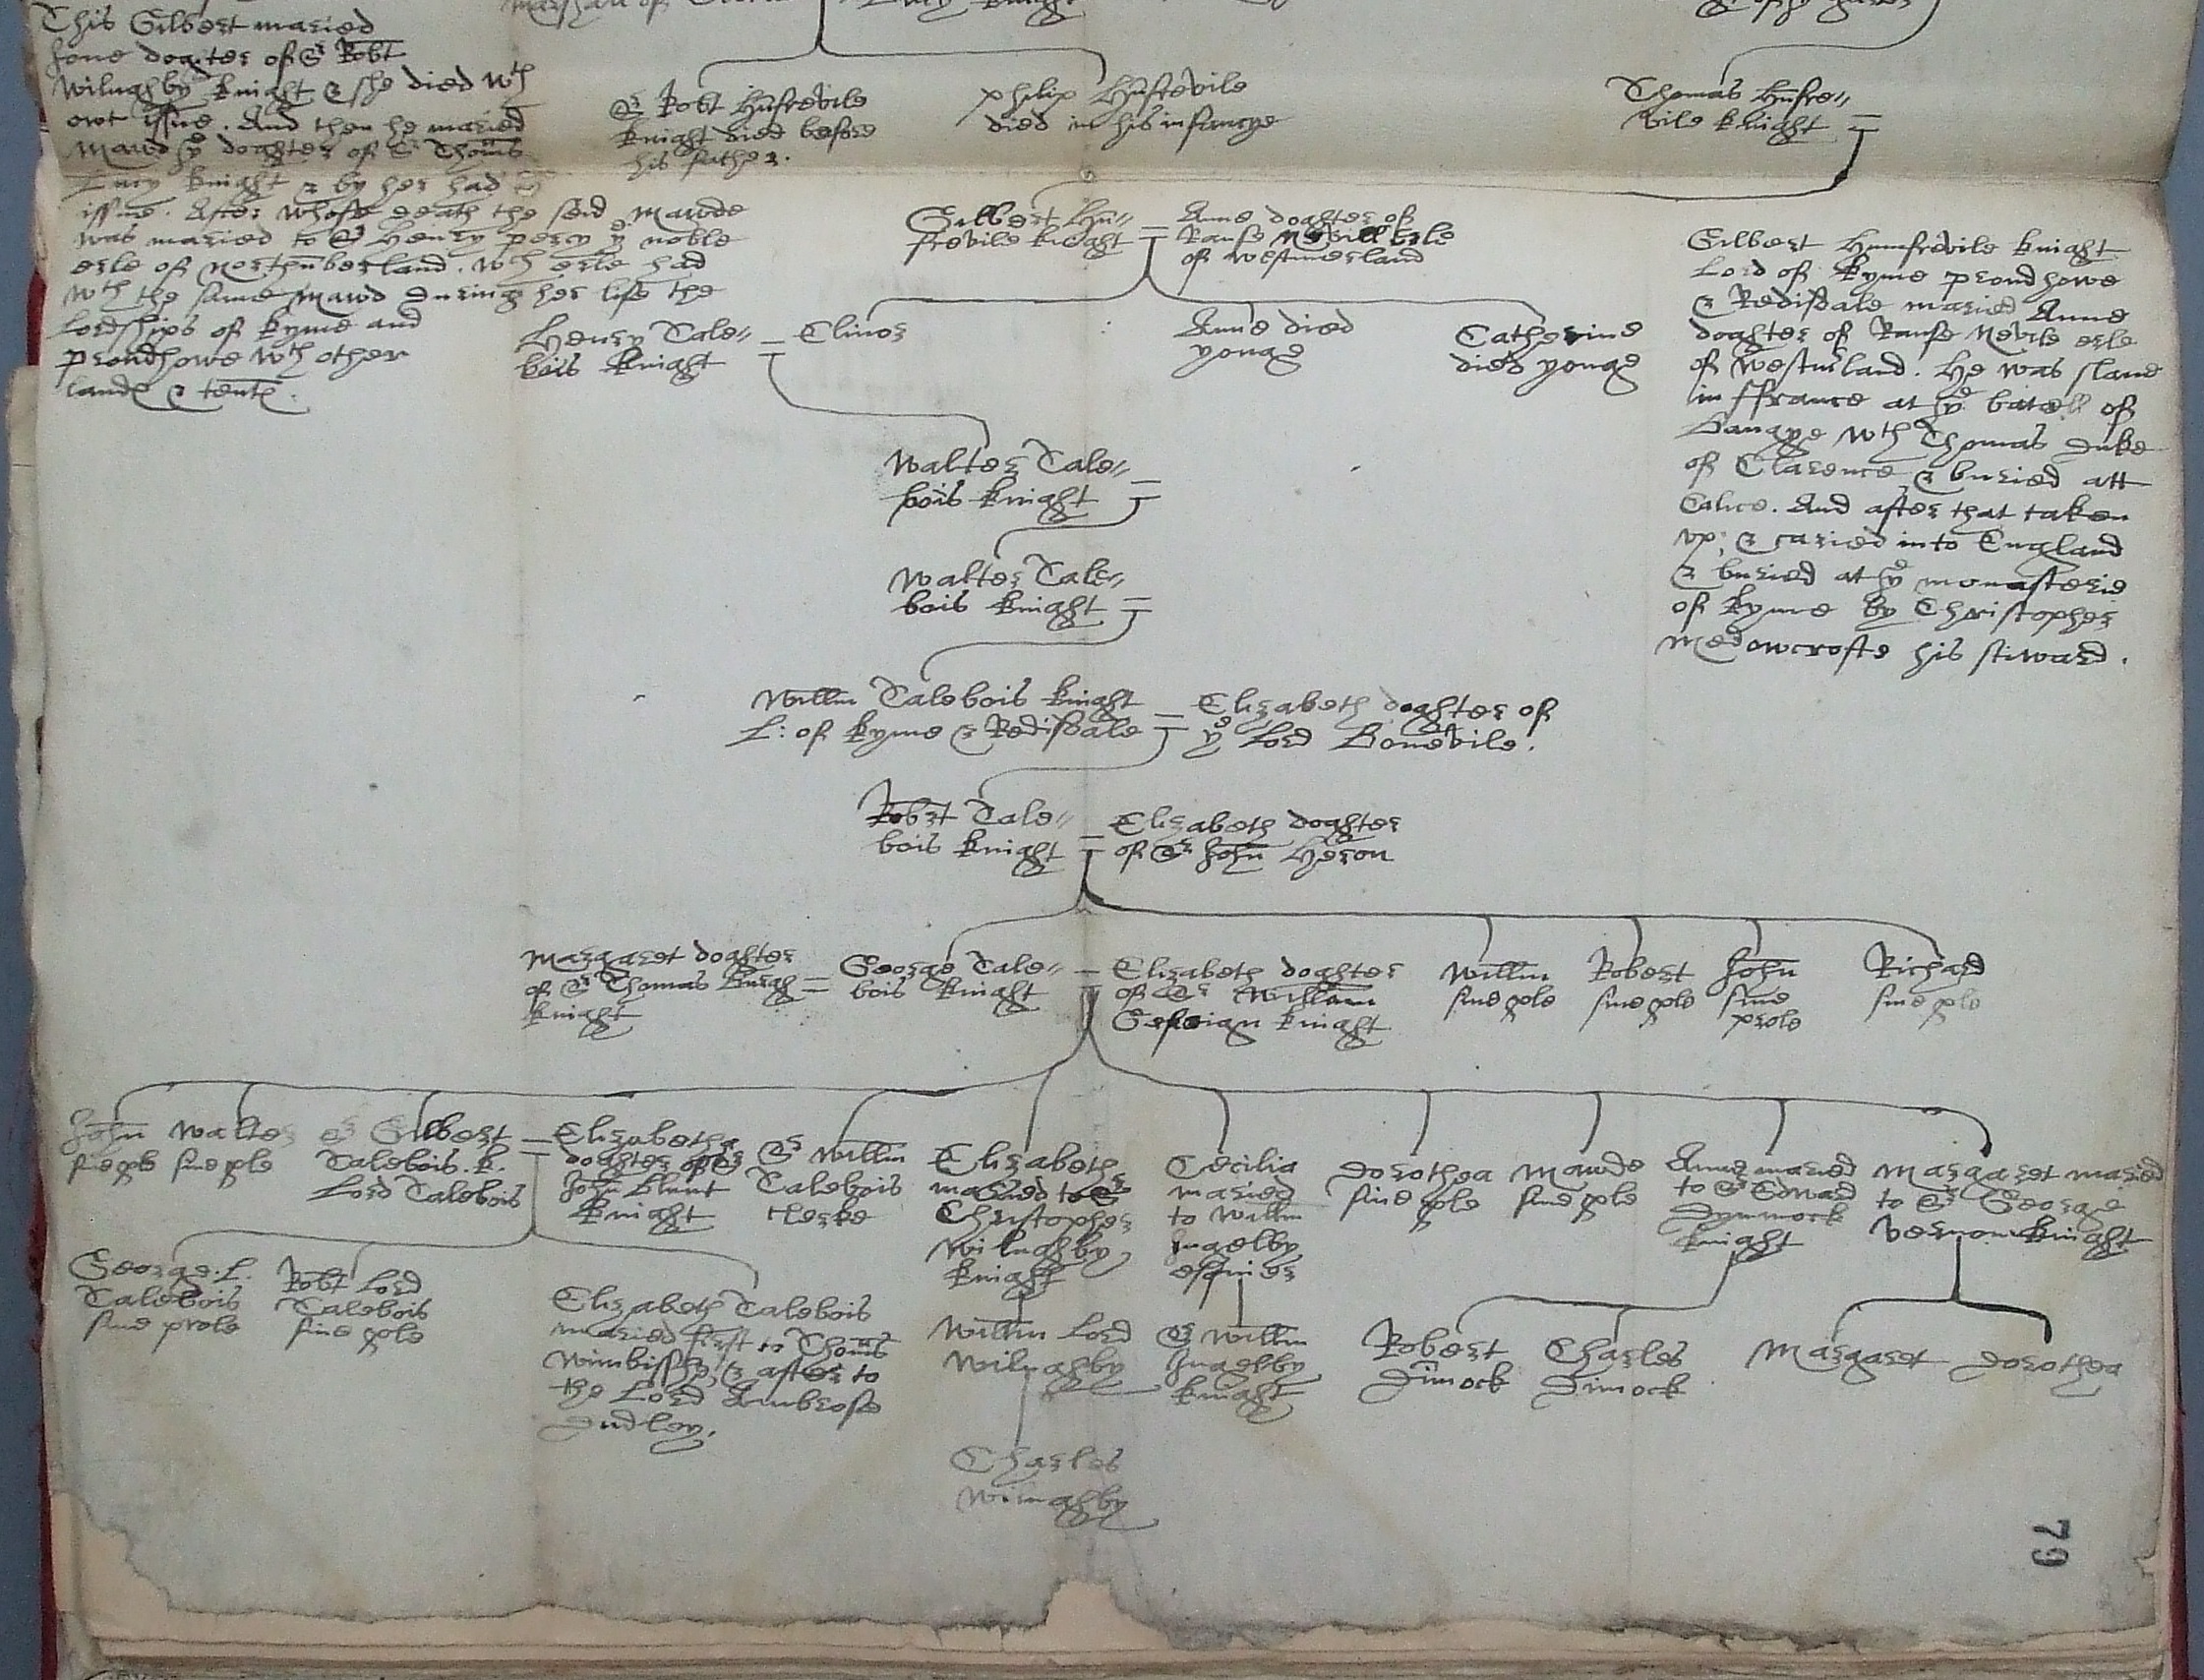 This Gilbert maried
Jone dogter of Sr Robt
Wilughby knight & she died wth
owt issue. And then he maried
Mawd ye doghter of Sr Thoms
Lucy knight & by her had
issue. After whose death the seid Mawde
was maried to Sr Henry percy ye noble
erle of northuberland. wch erle had
wth the same Mawd during her life the
Lordships of kyme and
prondhowe wth other
lands & tents.
Sr Robt Hufrevile
knight died before
his father.
philip Hufrevile
died in his infancye
Thomas Hufre〃
vile knight =
Gilbert Hu〃
frevile knight =
Anne doghter of
Ranfe Nevill erle
of westmerland
Gilbert Humfrevile knight
Lord of kyme prondhowe
& Redisdale maried Anne
doghter of Ranfe Nevile erle
of Westmrland. He was slane
in ffrance at ye batell of
Bangye wth Thomas duke
of Clarence & buried att
Calice. And after that taken
vp, & caried into England
& buried at ye monasterie
of kyme by Christopher
Medowcrofte his steward.
Henry Tale〃
bois knight =
Elinor
Anne died
yonge
Catherine
died yonge
Walter Tale〃
bois knight =
Walter Tale〃
bois knight =
Willm Talebois knight
L: of kyme & Redisdale =
Elizabeth doghter of
ye Lord Bonevile.
Robrt Tale〃
bois knight =
Elizabeth doghter
of Sr John Heron
Margaret doghter
of Sr Thomas Burgh =
knight
George Tale〃
bois knight =
Elizabeth doghter
of Sr William
Gascoign knight
Willm
sine ple
Robert
sine ple
John
sine
prole
Richard
sine ple
John
sine ple
Walter
sine ple
Sr Gilbert =
Talebois. k.
Lord Talebois
Elizabetha
doghter of Sr
John Blunt
knight
Sr Willm
Talebois
clerke
Elizabeth
maried to Sr
Christopher
Wilughby
knight
Cecilia
maried
to Willm
Ingelby
esquier
Dorothea
sine ple
Mawde
sine ple
Anne maried
to Sr Edward
Dymmock
knight
Margaret maried
to Sr George
Vernon knight
George. L.
Talebois
sine prole
Robt Lord
Talebois
sine ple
Elizabeth Talebois
maried first to Thoms
Wimbissh, & after to
the Lord Ambrose
Dudley.
Willm Lord
Wilughby
Sr Willm
Ingelby
knight
Robert
Dimock
Charles
Dimock
Margaret
Dorothea
Charles
Wilughby
79